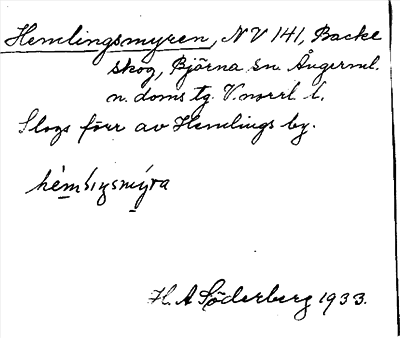 Hemlingsmyren, NV 141, Backe
skog, Björna sn Ångerml.
n. doms tg. V.norrl l.
Slogs förr av Hemlings by.
H. A Söderberg 1933.